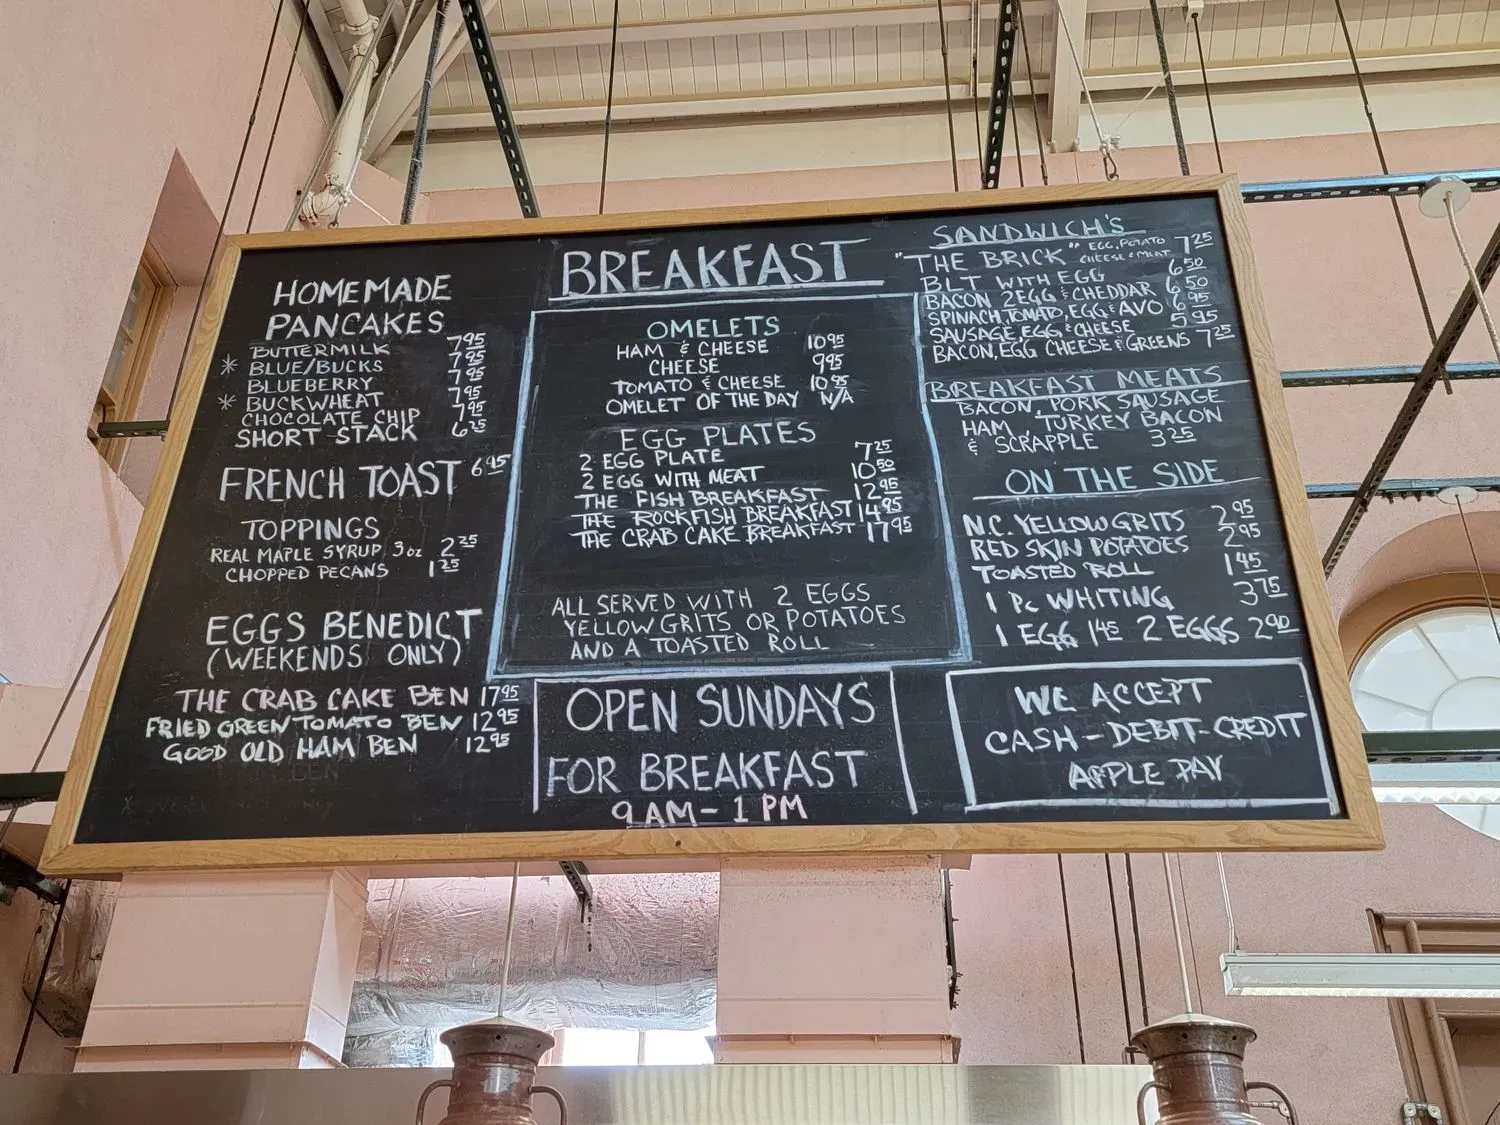 HOMEMADE
PANCAKES
BUTTERMILK 7.95
* BLUE/BUCKS 7.95
BLUEBERRY 7.95
* BUCKWHEAT 7.95
CHOCOLATE CHIP 7.95
SHORT STACK 6.25
FRENCH TOAST 6.95
TOPPINGS
REAL MAPLE SYRUP 3oz 2.25
CHOPPED PECANS 1.25
EGGS BENEDICT
(WEEKENDS ONLY)
THE CRAB CAKE BEN 17.95
FRIED GREEN TOMATO BEN 12.95
GOOD OLD HAM BEN 12.95
BREAKFAST
OMELETS
HAM & CHEESE 10.95
CHEESE 9.95
TOMATO & CHEESE 10.95
OMELET OF THE DAY N/A
EGG PLATES
2 EGG PLATE 7.25
2 EGG WITH MEAT 10.50
THE FISH BREAKFAST 12.95
THE ROCKFISH BREAKFAST 14.95
THE CRAB CAKE BREAKFAST 17.95
ALL SERVED WITH 2 EGGS
YELLOW GRITS OR POTATOES
AND A TOASTED ROLL
OPEN SUNDAYS
FOR BREAKFAST
9 AM - 1 PM
SANDWICH'S
"THE BRICK" EGG, POTATO CHEESE & MEAT 7.25
BLT WITH EGG 6.50
BACON 2EGG & CHEDDAR 6.50
SPINACH, TOMATO, EGG & AVO 6.95
SAUSAGE, EGG, & CHEESE 5.95
BACON, EGG CHEESE & GREENS 7.25
BREAKFAST MEATS
BACON, PORK SAUSAGE
HAM, TURKEY BACON
& SCRAPPLE 3.25
ON THE SIDE
N.C. YELLOW GRITS 2.95
RED SKIN POTATOES 2.95
TOASTED ROLL 1.45
1 Pc WHITING 3.75
1 EGG 1.45 2 EGGS 2.90
WE ACCEPT
CASH - DEBIT - CREDIT
APPLE PAY